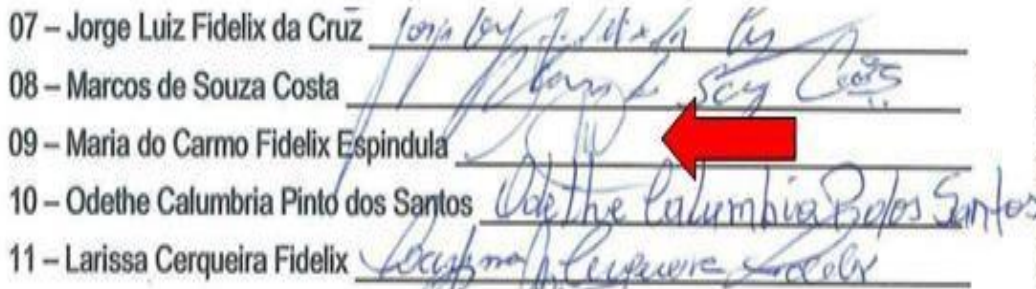 07 – Jorge Luiz Fidelix da Cruz
08 – Marcos de Souza Costa
09 – Maria do Carmo Fidelix Espindula
10 – Odethe Calumbria Pinto dos Santos Odethe Calumbria P dos Santos
11 – Larissa Cerqueira Fidelix Larissa Cerqueira Fidelix